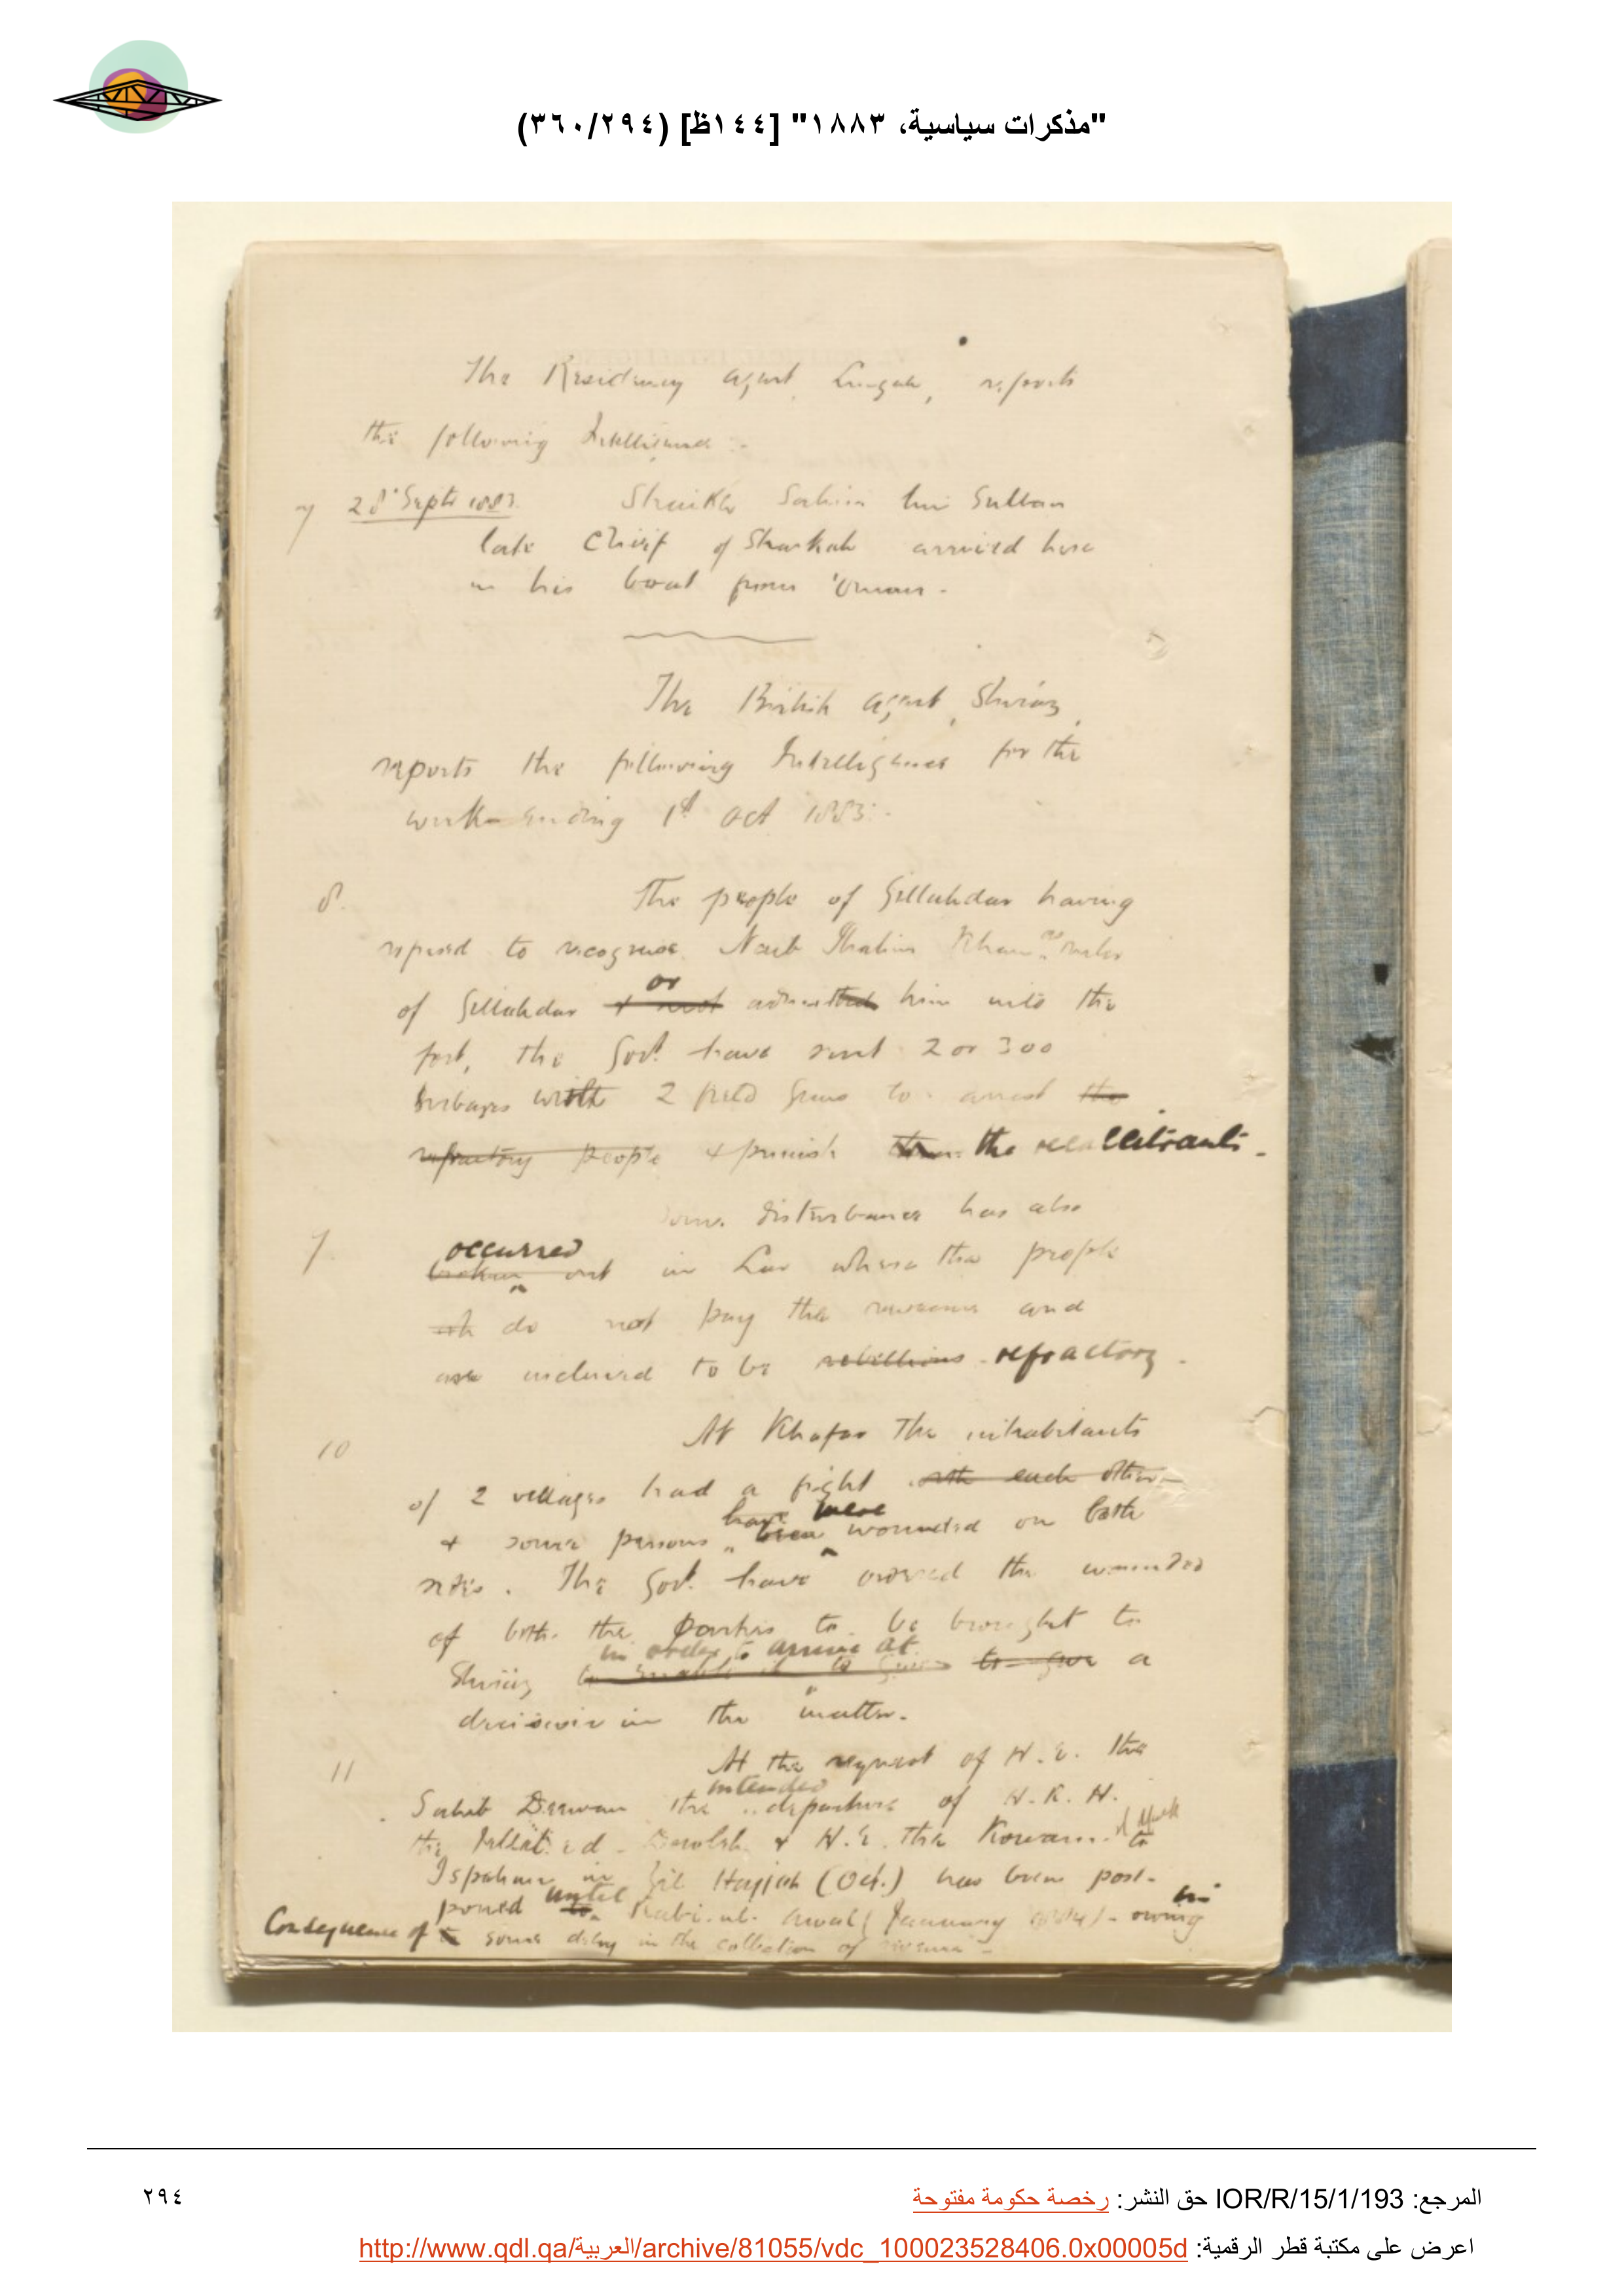 "مذكرات سياسية، ١٨٨٣" [١٤٤ظ] (٣٦٠/٢٩٤)
The Residency agent, Lingah, reports
the following Intelligence :-
7 28 Septr 1883. Shaikh Salim bin Sultan
late Chief of Sharkah arrived here
in his boat from 'Oman -
The British agent, Shiraz,
reports the following Intelligence for the
week ending 1st Oct 1883 :-
8. The people of Gillahdar having
refused to recognise Naib Ibrahim Khan as ruler
of Gillahdar + not or admitted him into the
fort, the Govt. have sent 2 or 300
Surbazes with 2 field Guns to arrest the
refractory people + punish them the recalcitrants -
Some disturbance has also
9. occurred broken out in Lar where the people
do not pay the revenue and
are inclined to be rebellious refractory -
10 At Khafar the inhabitants
of 2 villages had a fight with each other
+ some persons have been were wounded on both
sides. The Govt. have ordered the wounded
of both the parties to be brought to
Shiraz to enable it to give in order to arrive at to give a
decision in the matter.
11 At the request of H.E. the
Sahib Deewan the intended departure of H.R.H.
the Jellal-ed-Dowlah & H.E. the Kowam to
Ispahan in Zil Hajjah (Oct.) has been post-
poned to until Rabi-ul-awal (January 1884) - owing in
Consequence of to some delay in the collection of revenue -
المرجع: IOR/R/15/1/193 حق النشر: رخصة حكومة مفتوحة
٢٩٤
اعرض على مكتبة قطر الرقمية: http://www.qdl.qa/العربية/archive/81055/vdc_100023528406.0x00005d